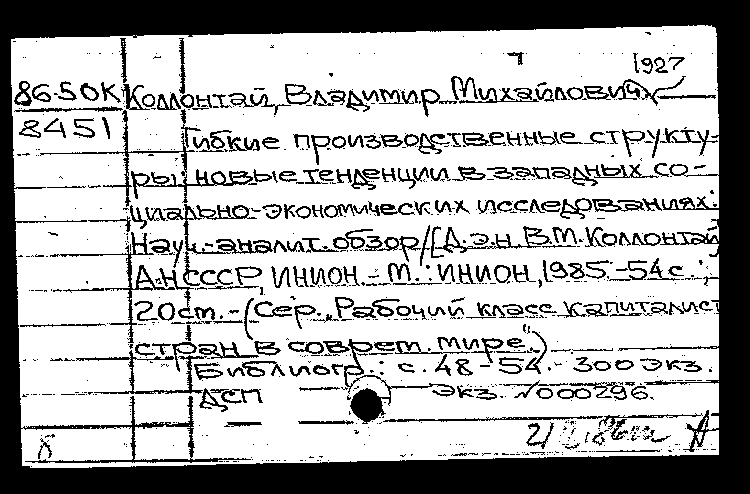 1927
86-50К Коллонтай, Владимир Михайлович
8451 Гибкие производственные структу-
ры: новые тенденции в западных со-
циально-экономических исследованиях:
Науч.-аналит. обзор/[Д.э.н. В.М. Коллонтай
АН СССР, ИНИОН.-М.: ИНИОН, 1985-54с.;
20см.-(Сер. „Рабочий класс капиталист
стран в соврем. мире")
Библиогр.: с. 48-54.- 300 экз.
ДСП экз. №000296.
8